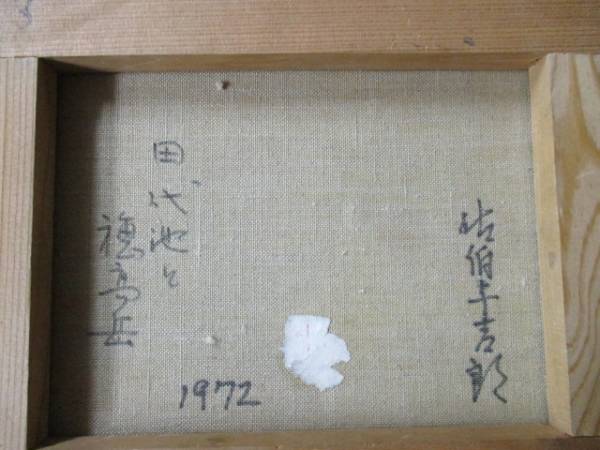 佐伯 吉郎
田代池と
穂高岳
1972